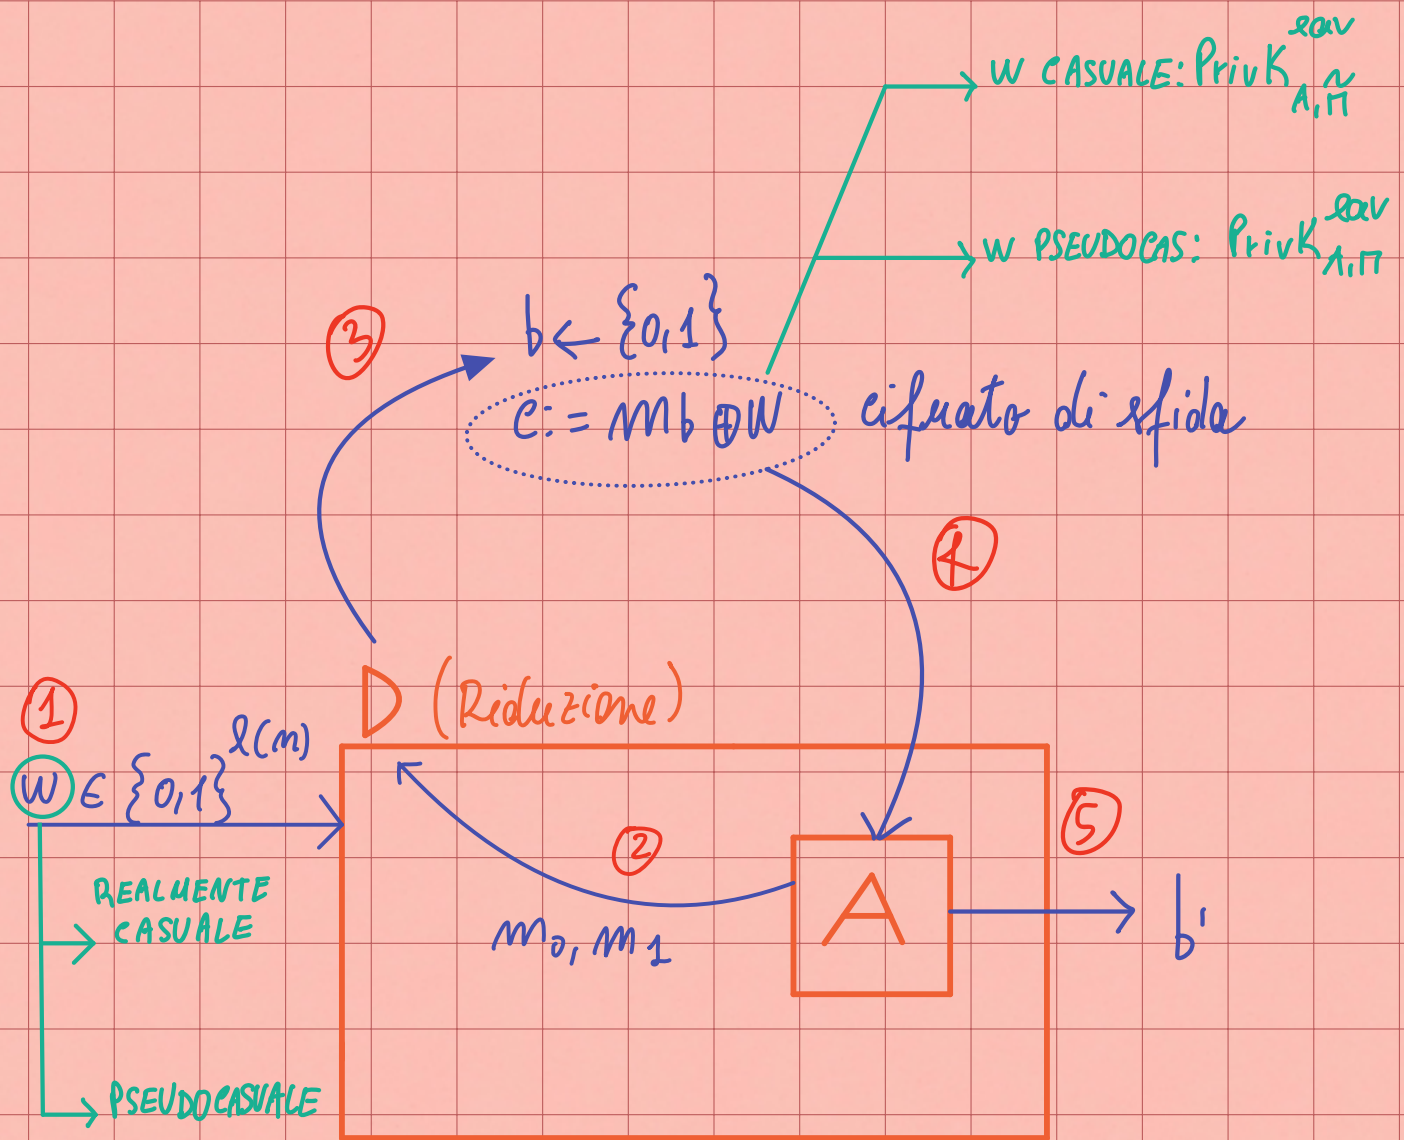 W CASUALE: PrivK^{eav}_{A,Π̃}
W PSEUDOCAS: PrivK^{eav}_{A,Π}
3
b ← {0,1}
c := mb ⊕ W
cifrato di sfida
4
D (Riduzione)
1
W ∈ {0,1}^{l(n)}
5
2
REALMENTE
CASUALE
A
b'
m₀, m₁
PSEUDOCASUALE